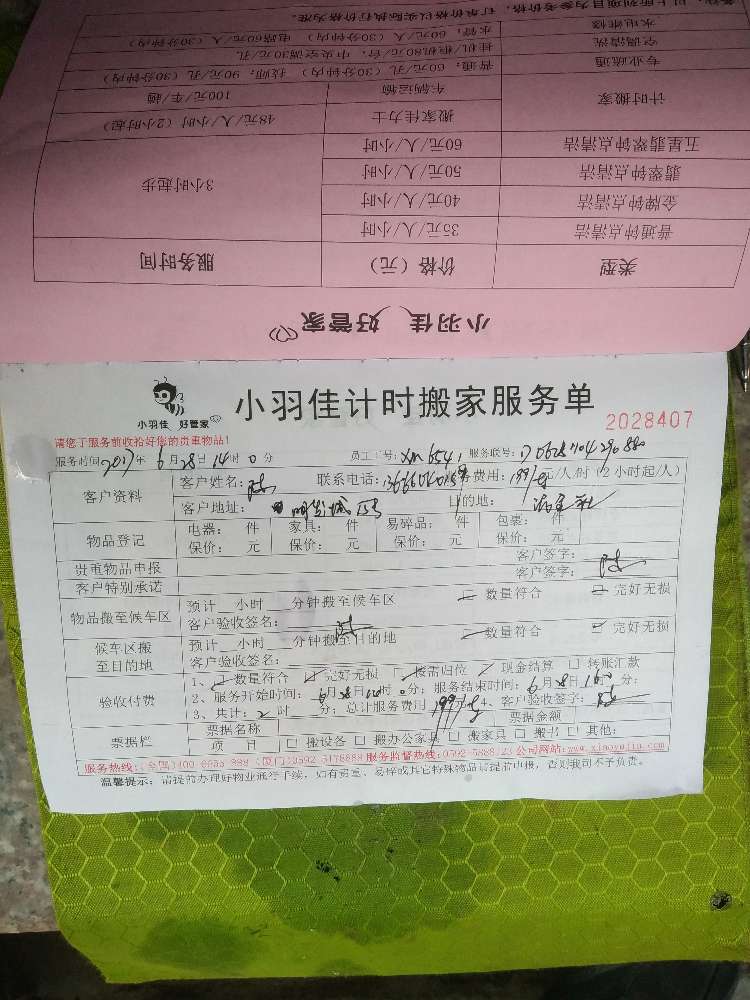 备注：以上所列项目为参考价格，订单价格以实际执行价格为准。
水电维修 水管：60元/人（30分钟内） 电路60元/人（30分钟内）
空调清洗 挂机/柜机80元/台；中央空调30元/孔
专业疏通 普通：60元/孔（30分钟内） 技师：90元/孔（30分钟内）
计时搬家 车辆运输 100元/车/趟
搬家佳力士 48元/人/小时（2小时起）
五星翡翠钟点清洁 60元/人/小时
翡翠钟点清洁 50元/人/小时 3小时起步
金牌钟点清洁 40元/人/小时
普通钟点清洁 35元/人/小时
类型 价格（元） 服务时间
小羽佳 好管家
小羽佳 好管家
小羽佳计时搬家服务单
2028407
请您于服务前收拾好您的贵重物品!
服务时间2017年6月28日14时0分 员工工号：xm6541 服务联号：
客户资料 客户姓名：陈 联系电话： 服务费用：199/ 元/人/时（2小时起/人）
客户地址： 明发城 目的地：
物品登记 电器： 件 家具： 件 易碎品： 件 包裹： 件
保价： 元 保价： 元 保价： 元 保价： 元
贵重物品申报 客户签字：
客户特别承诺 客户签字：陈
物品搬至候车区 预计 小时 分钟搬至候车区 数量符合 完好无损
客户验收签名：陈
候车区搬至目的地 预计 小时 分钟搬至目的地 数量符合 完好无损
客户验收签名：
验收付费 1、数量符合 完好无损 按需归位 现金结算 转账汇款
2、服务开始时间：6月28日14时0分；服务结束时间：6月28日16时 分；
3、共计：2时 分；总计服务费用199/ 元 4、客户验收签字：陈
票据栏 票据名称 票据金额
项 目 搬设备 搬办公家具 搬家具 搬书 其他：
服务热线：(全国)400-6655-988 (厦门)0592-5478888 服务监督热线：0592-5888123 公司网站：www.xiaoyujia.com
温馨提示：请提前办理好物业通行手续，如有贵重、易碎或其它特殊物品请提前申报，否则我司不予负责。